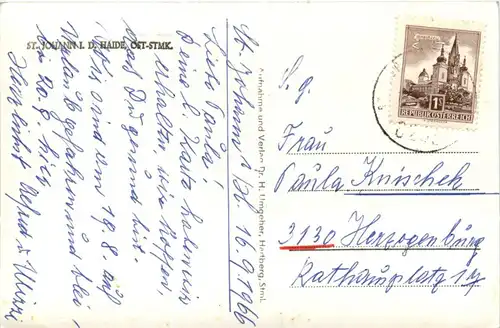 ST. JOHANN I. D. HAIDE, OST-STMK.
St. Johann 16.9.1966
Liebe Paula!
Deine l. Karte
erhalten wir hoffen,
das Du gesund bist.
Wir sind vom 19.8. auf
Urlaub gefahren und
bis 20.9. hier
Herzlichst
Aufnahme und Verlag Dr. H. Umgeher, Hartberg, Stmk.
1S
REPUBLIK ÖSTERREICH
S. g.
Frau
Paula Knischek
3130 Herzogenburg
Rathausplatz 14